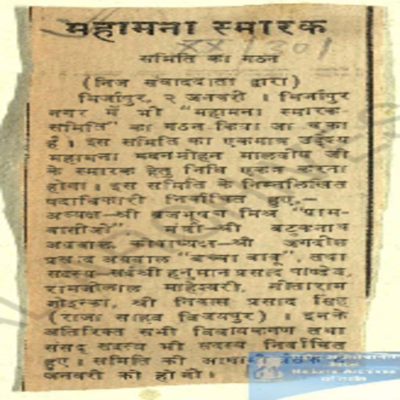 महामना स्मारक
समिति का गठन
(निज संवाददाता द्वारा)
मिर्जापुर, २ जनवरी । मिर्जापुर
नगर में भी "महामना स्मारक-
समिति" का गठन किया जा चुका
है । इस समिति का एकमात्र उद्देश्य
महामना मदनमोहन मालवीय जी
के स्मारक हेतु निधि एकत्र करना
होगा । इस समिति के निम्नलिखित
पदाधिकारी निर्वाचित हुए,-
अध्यक्ष-श्री ब्रजभूषण मिश्र "ग्राम-
वासीजी" मंत्री-श्री बटुकनाथ
अग्रवाल, कोषाध्यक्ष-श्री जगदीश
प्रसाद अग्रवाल "बच्चा बाबू", तथा
सदस्य-सर्वश्री हनुमान प्रसाद पाण्डेय,
रामगोपाल माहेश्वरी, सीताराम
गोइन्का, श्री निवास प्रसाद सिंह
(राजा साहब विजयपुर) । इनके
अतिरिक्त सभी विधायकगण तथा
संसद सदस्य भी सदस्य निर्वाचित
हुए । समिति की आगामी बैठक
जनवरी को होगी ।